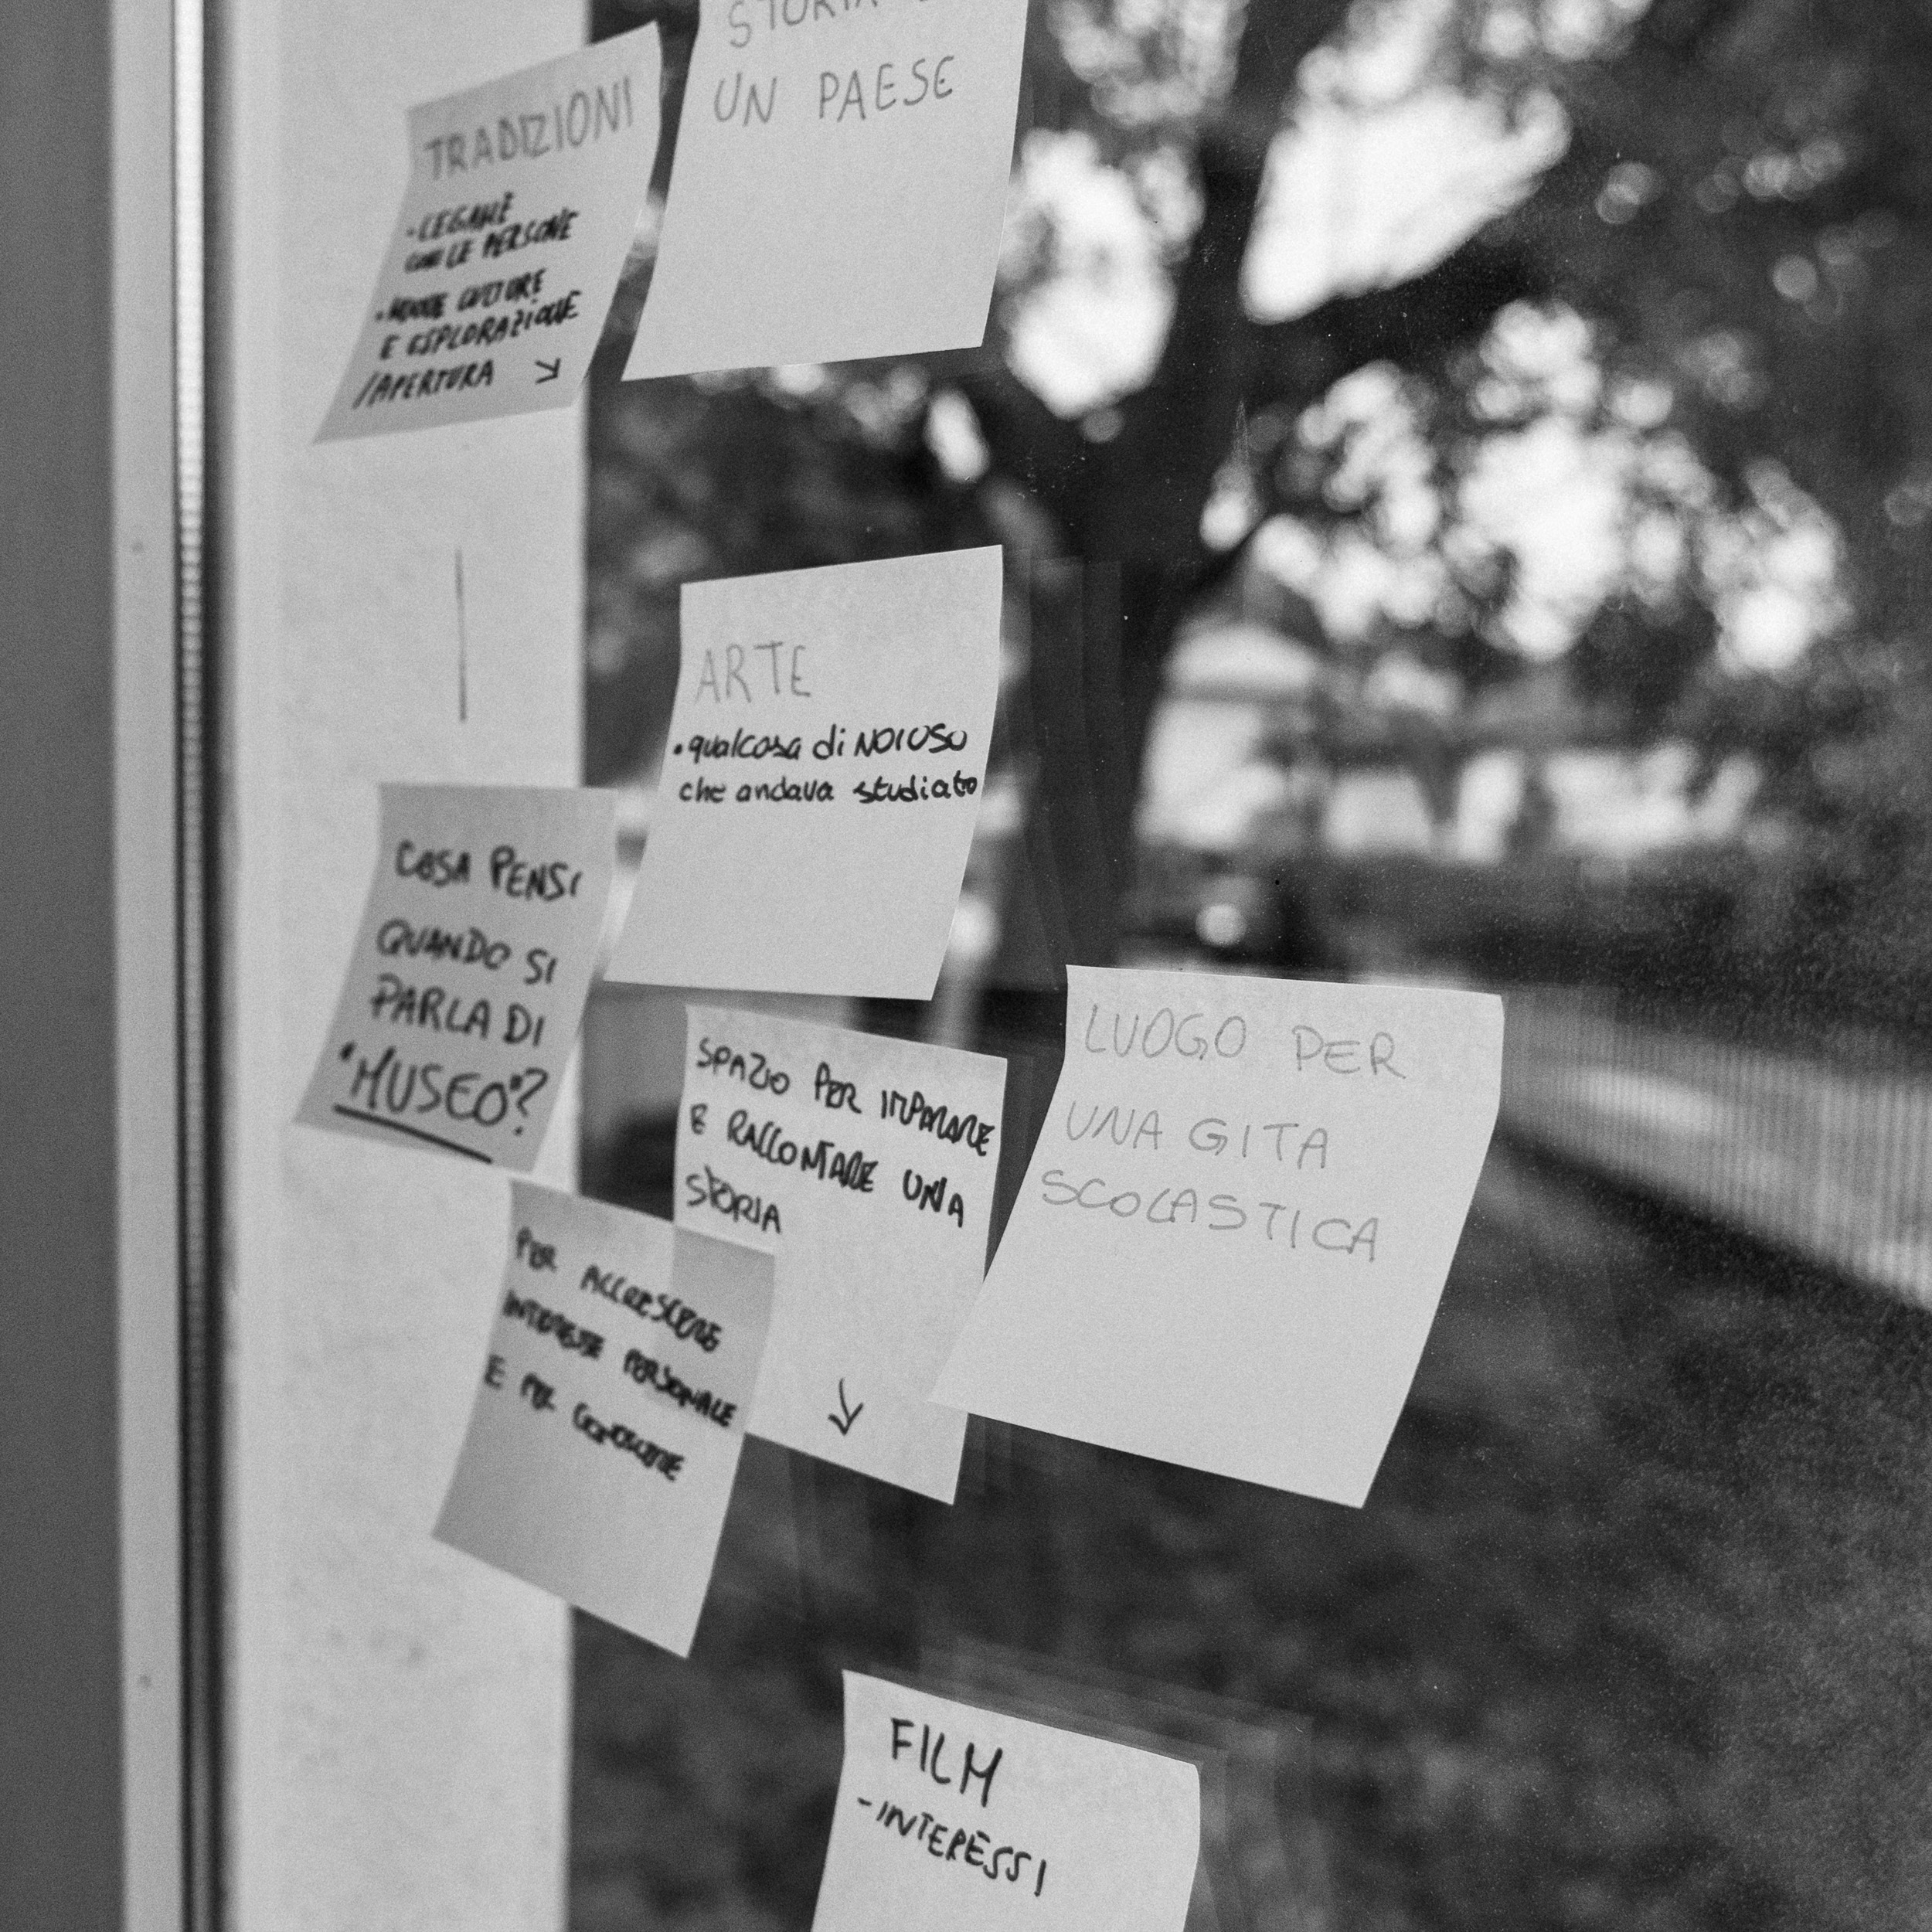 TRADIZIONI
• LEGAME
CON LE PERSONE
• NUOVE CULTURE
E ESPLORAZIONE
/APERTURA ↘
STORIA
UN PAESE
ARTE
• qualcosa di NOIOSO
che andava studiato
COSA PENSI
QUANDO SI
PARLA DI
"MUSEO"?
SPAZIO PER IMPARARE
E RACCONTARE UNA
STORIA
↓
LUOGO PER
UNA GITA
SCOLASTICA
PER ACCRESCERE
INTERESSE PERSONALE
E PER CONOSCERE
FILM
- INTERESSI